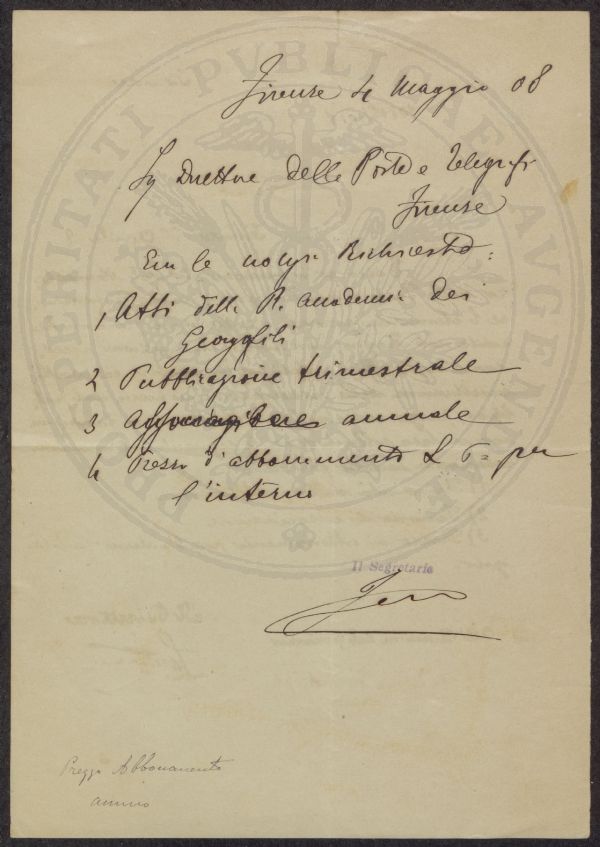 PROSPERITATI PVBLICAE AVGENDAE
Firenze 4 Maggio 08
Sig Direttore delle Poste e Telegrafi
Firenze
Ecco le notizie Richieste:
1, Atti della R. Accademia dei
Georgofili
2 Pubblicazione trimestrale
3 annuale
4 Prezzo d'abbonamento L per
l'interno
Il Segretario
Prezzo Abbonamento
annuo